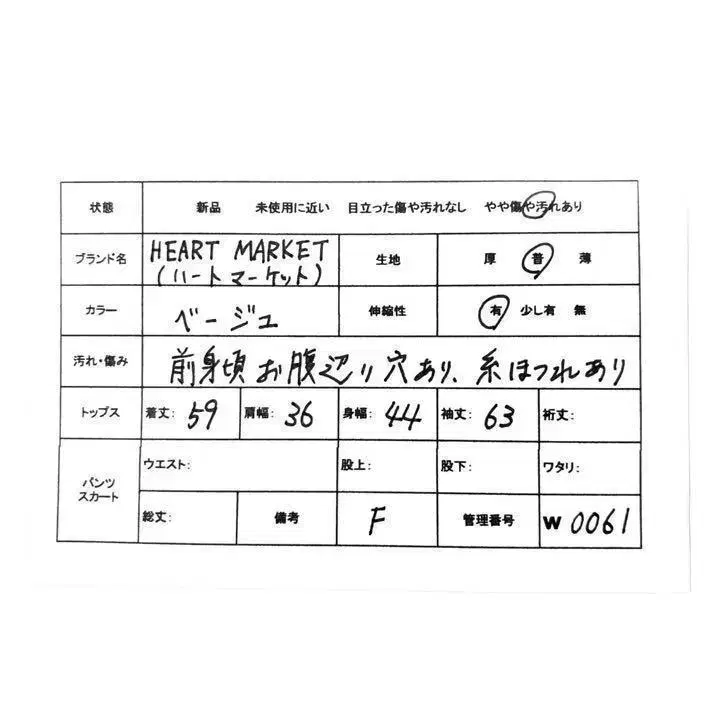 状態 新品 未使用に近い 目立った傷や汚れなし やや傷や汚れあり
ブランド名 HEART MARKET (ハートマーケット) 生地 厚 普 薄
カラー ベージュ 伸縮性 有 少し有 無
汚れ・傷み 前身頃お腹辺り穴あり、糸ほつれあり
トップス 着丈: 59 肩幅: 36 身幅: 44 袖丈: 63 裄丈:
パンツ スカート ウエスト: 股上: 股下: ワタリ:
総丈: 備考 F 管理番号 W 0061